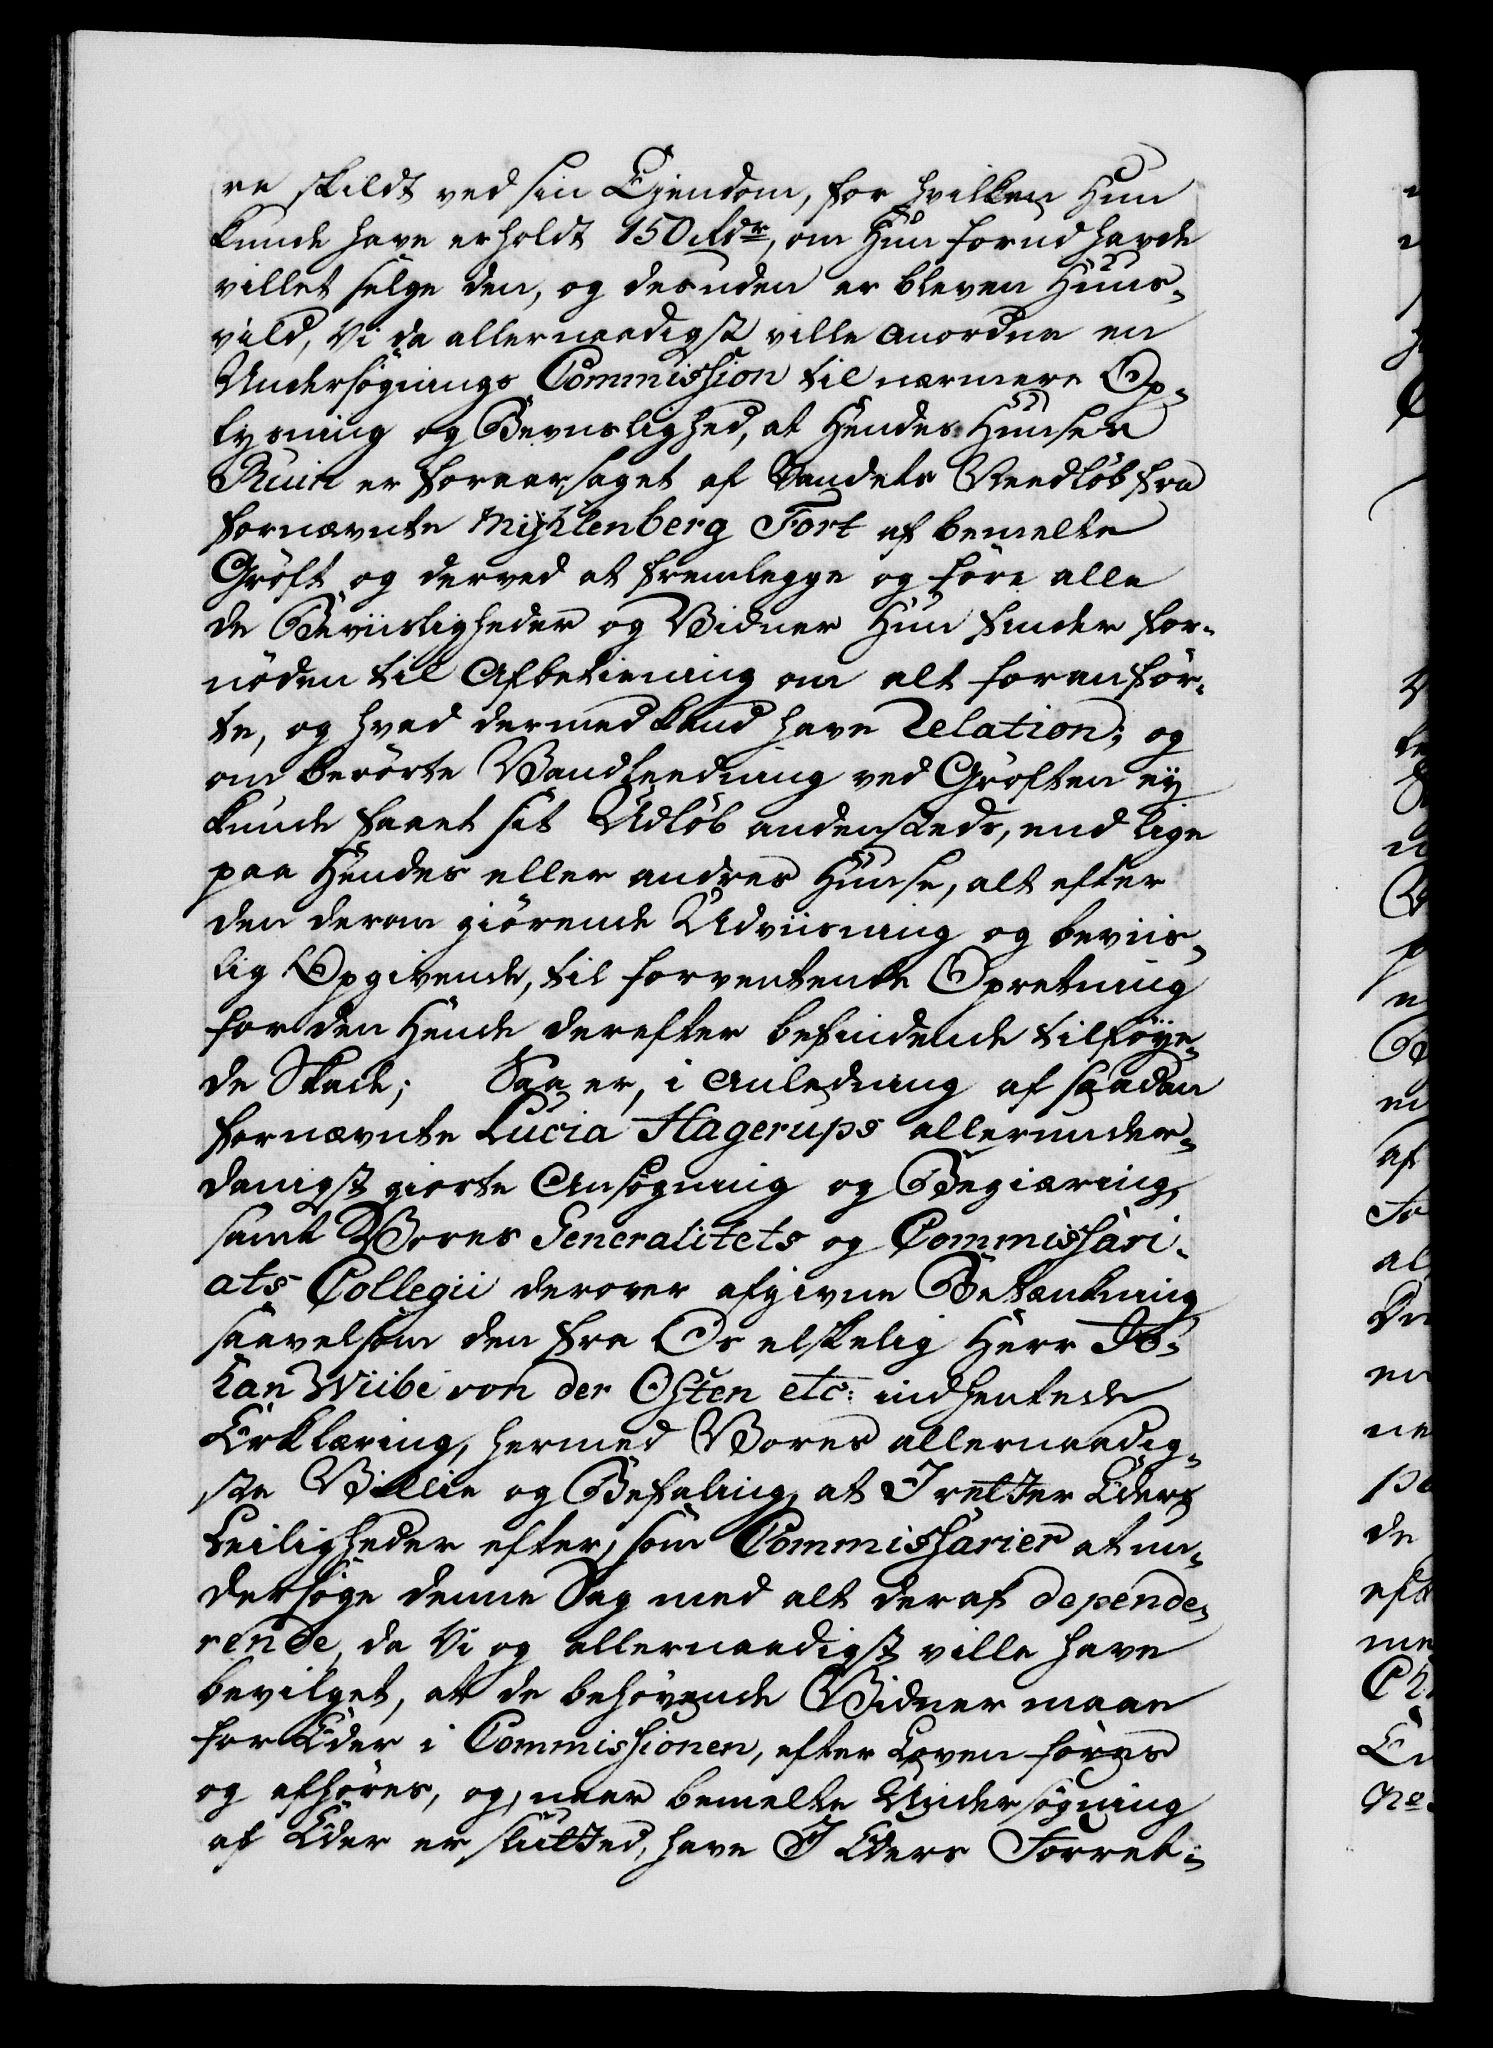 re skildt ved sin Ejendom, for hvilken Hun
kunde have erholdt 150 Rdr, om Hun forud havde
villet sælge den, og desuden er bleven Huus-
vild, Vi da allernaadigst ville anordne en
Undersøgnings Commission til nærmere Op-
lysning og Beviislighed, at Hendes Huuses
Ruin er foraarsaget af Vandets Needløb fra
fornævnte Myhlenberg Fort af bemelte
Grøft og derved at fremlegge og føre alle
de Beviisligheder og Vidner Hun finder for-
nøden til Afbetiening om alt foranfør-
te, og hvad dermed kand have Relation; og
om berørte Vandleedning ved Grøften eÿ
kunde faaet sit Udløb andensteds, end lige
paa Hendes eller andres Huuse, alt efter
den derom giørende Udviisning og beviis-
lig Opgivende, til forventende Opretning
for den Hende derefter befindende tilføye-
de Skade; Saa er, i Anledning af saadan
fornævnte Lucia Hagerups allerunder-
danigst giorte Ansøgning og Begiæring,
samt Vores Generalitets og Commissari-
ats Collegii derover afgivne Betænkning
saavelsom den fra Os elskelig Herr Jo-
han Wiibe von der Osten etc: indhentede
Erklæring, hermed Vores allernaadig-
ste Villie og Befaling, at I retter Eders
Leiligheder efter, som Commissarier at un-
dersøge denne Sag med alt deraf depende-
rende, da Vi og allernaadigst ville have
bevilget, at de behøvende Vidner maae
for Eder i Commissionen, efter Loven føres
og afhøres, og, naar bemelte Undersøgning
af Eder er slutted, have I Eders Forret-